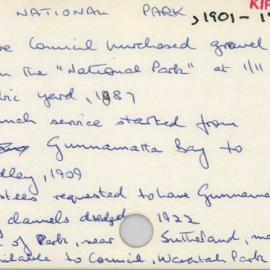 NATIONAL PARK, 1901-1
KIR
re Council purchased gravel
m the "National Park" at 1/11
bic yard, 1987
nch service started from
Gunnamatta Bay to
dley, 1909
stees requested to have Gunnama
channels dredged 1922
of Park, near Sutherland, ma
ailable to Council, Waratah Park